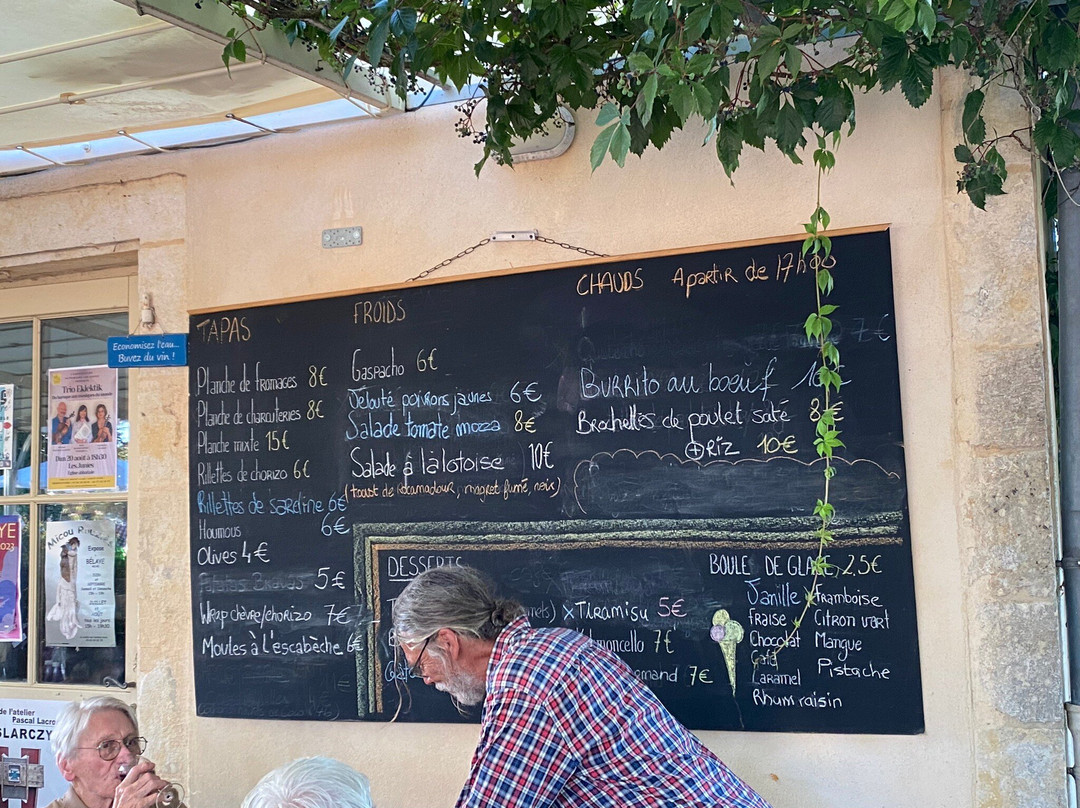 TAPAS
Planche de fromages 8€
Planche de charcuteries 8€
Planche mixte 15€
Rillettes de chorizo 6€
Rillettes de sardine 6€
Houmous 6€
Olives 4€
5€
Wrap chèvre/chorizo 7€
Moules à l'escabèche 6€
FROIDS
Gaspacho 6€
Velouté poivrons jaunes 6€
Salade tomate mozza 8€
Salade à la lotoise 10€
(toast de Rocamadour, magret fumé, noix)
CHAUDS A partir de 17h00
7€
Burrito au boeuf
Brochettes de poulet saté 8€
+ Riz 10€
DESSERTS
x Tiramisu 5€
7€
7€
BOULE DE GLACE 2,5€
Vanille
Fraise
Chocolat
Café
Caramel
Rhum raisin
Framboise
Citron vert
Mangue
Pistache
Economisez l'eau...
Buvez du vin !
Trio Eklektik
Dim 20 août à 18h30
Les Junies
2023
Micou
Expose
BÉLAYE
de l'atelier
Pascal